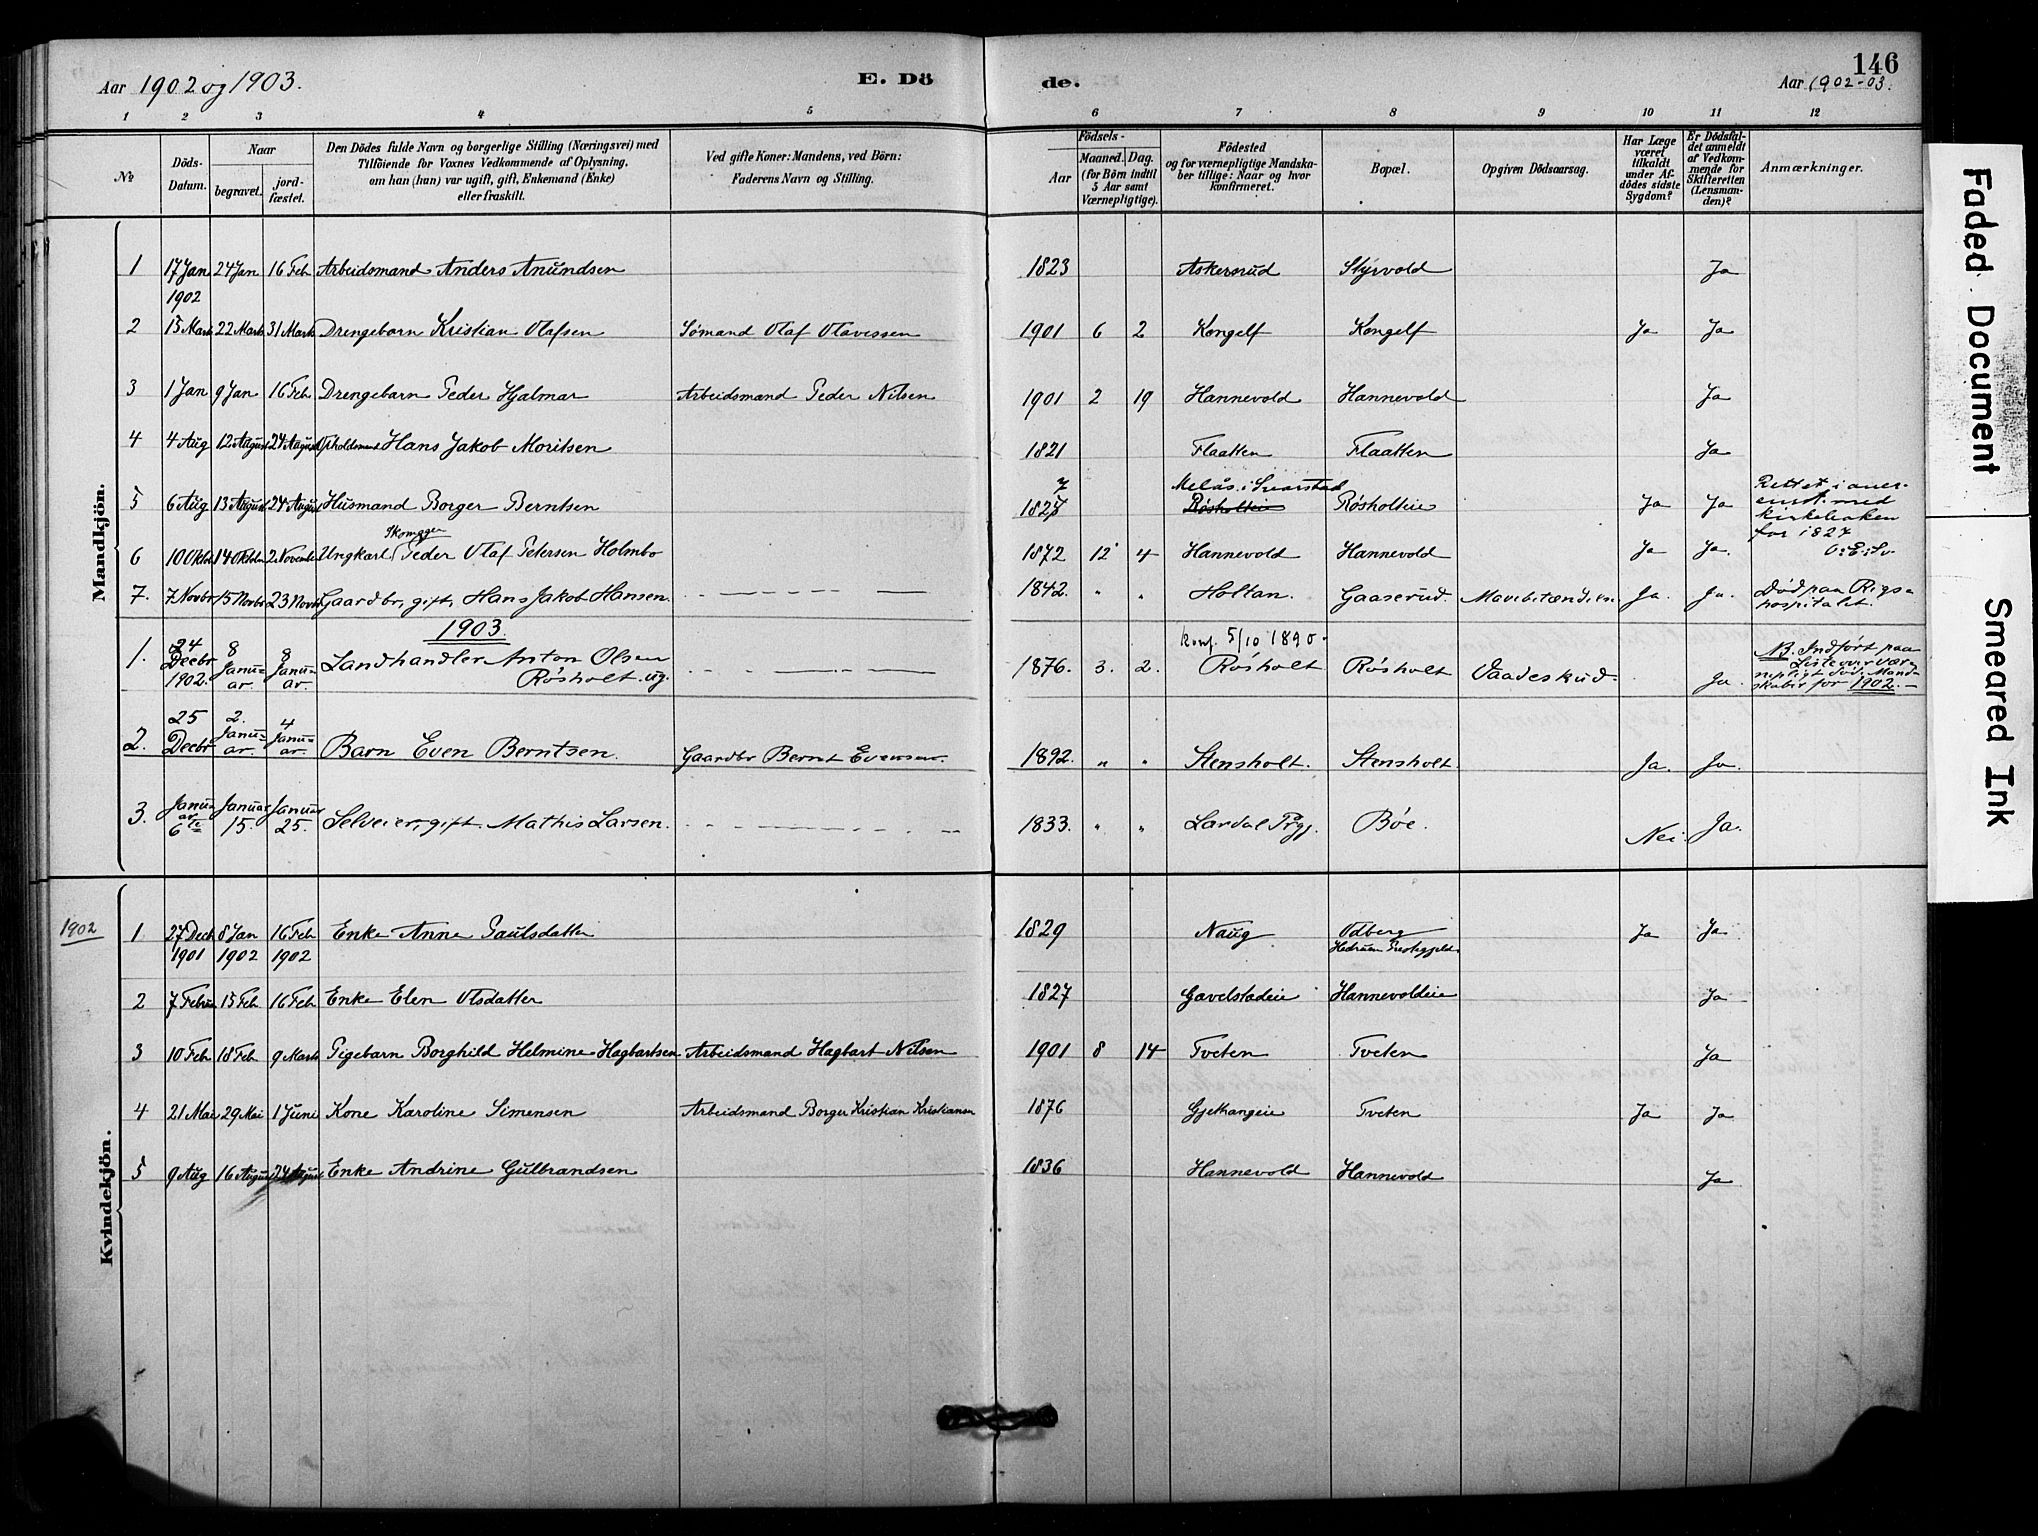 146
Aar 1902 og 1903. E. Dö de. Aar 1902-03.
1 2 3 4 5 6 7 8 9 10 11 12
№
Döds-Datum.
Naar
begravet.
jord-fæstet.
Den Dödes fulde Navn og borgerlige Stilling (Næringsvei) med
Tilföiende for Voxnes Vedkommende af Oplysning.
om han (hun) var ugift, gift, Enkemand (Enke)
eller fraskilt.
Ved gifte Koner: Mandens, ved Börn:
Faderens Navn og Stilling.
Födsels-
Aar
Maaned. Dag.
(for Börn indtil
5 Aar samt
Værnepligtige).
Födested
og for værnepligtige Mandska-
ber tillige: Naar og hvor
konfirmeret.
Bopæl.
Opgiven Dödsaarsag.
Har Læge
været
tilkaldt
under Af-
dödes sidste
Sygdom?
Er Dödsfal-
det anmeldt
af Vedkom-
mende for
Skifteretten
(Lensman-
den)?
Anmærkninger.
Mandkjön.
1 17 Jan 1902 24 Jan 16 Feb Arbeidsmand Anders Anundsen 1823 Askersrud Styrvold Ja
2 15 Marts 22 Marts 31 Marts Drengebarn Kristian Olafsen Sømand Olaf Olavessen 1901 6 2 Kongelf Kongelf Ja Ja
3 1 Jan 9 Jan 16 Feb Drengebarn Peder Hjalmar Arbeidsmand Peder Nilsen 1901 2 19 Hannevold Hannevold Ja
4 4 Aug 12 August 24 August Hans Jakob Moritsen 1821 Flaatten Flaatten Ja
5 6 Aug 13 August 24 August Husmand Borger Berntsen 1827 Melås i Svarstad Røsholteie Røsholteie Ja Ja Rettet i over-
med
kirkeboken
for 1827
6 10 Oktbr 14 Oktbr 2 Novembr Ungkarl Peder Olaf Petersen Holmbo 1872 12 4 Hannevold Hannevold Ja Ja.
7. 7 Novbr 15 Novbr 23 Novbr Gaardbr., gift, Hans Jakob Hansen. 1842. " " Holtan. Gaaserud. Mavebetændelse Ja. Ja. Død paa Rigs-
hospitalet.
1903.
1. 24 Decbr 1902. 8 Janu-ar. 8 Janu-ar. Landhandler Anton Olsen
Røsholt. ug. 1876. 3. 2. konf. 5/10 1890. Røsholt Røsholt Vaadeskud. Ja. NB. Indført paa
Liste over vær-
nepligt. døde Mand-
skaber for 1902.
2. 25 Decbr 2. Janu-ar. 4 Janu-ar. Barn Even Berntsen. Gaardbr Bernt Evensen. 1892. " " Stensholt. Stensholt. Ja. Ja.
3. Janu-ar 6te Januar 15. Januar 25. Selveier, gift Mathis Larsen. 1833. " " Lardal Prgj. Bøe. Nei. Ja.
Kvindekjön.
1902
1 27 Decb 1901 8 Jan 1902 16 Feb 1902 Enke Anne Paulsdatter 1829 Naug Odberg
Hedrum Prestegjeld Ja Ja
2 7 Februar 15 Feb 16 Feb Enke Elen Olsdatter 1827 Gavelstadeie Hannevoldeie Ja
3 10 Feb 18 Feb 9 Marts Pigebarn Borghild Helmine Hagbartsen Arbeidsmand Hagbart Nilsen 1901 8 14 Tveten Tveten Ja
4 21 Mai 29 Mai 1 Juni Kone Karoline Simensen Arbeidsmand Borger Kristian Kristiansen 1876 Gjethangeie Tveten Ja Ja
5 9 Aug 16 August 24 August Enke Andrine Gulbrandsen 1836 Hannevold Hannevold Ja
Faded Document
Smeared Ink